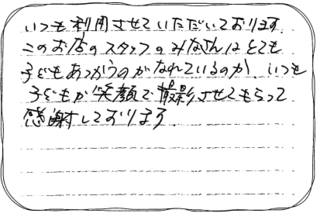 いつも利用させていただいております
このお店のスタッフのみなさんはとても
子どもあつかうのがなれているのか いつも
子どもが笑顔で撮影させてもらって
感謝しております